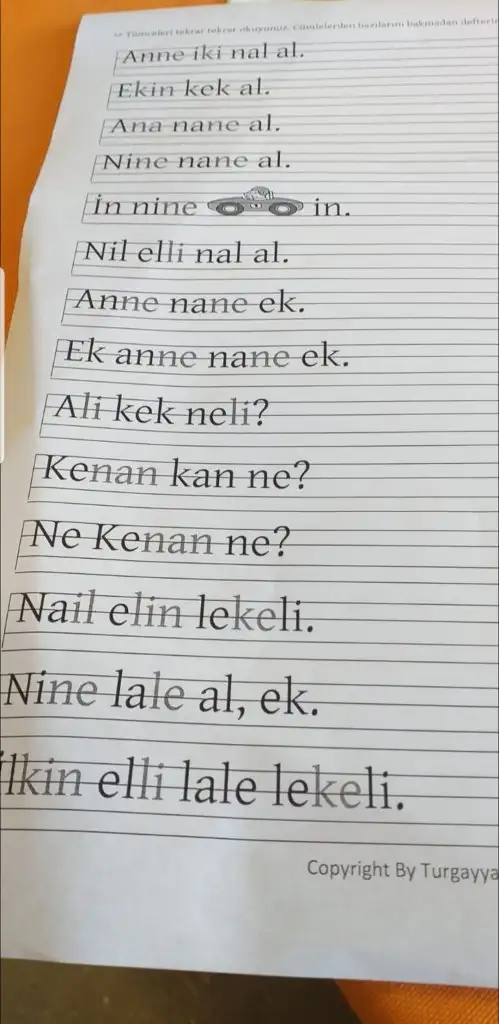 Tümceleri tekrar tekrar okuyunuz. Cümlelerden bazılarını bakmadan
Anne iki nal al.
Ekin kek al.
Ana nane al.
Nine nane al.
İn nine in.
Nil elli nal al.
Anne nane ek.
Ek anne nane ek.
Ali kek neli?
Kenan kan ne?
Ne Kenan ne?
Nail elin lekeli.
Nine lale al, ek.
İlkin elli lale lekeli.
Copyright By Turgayya